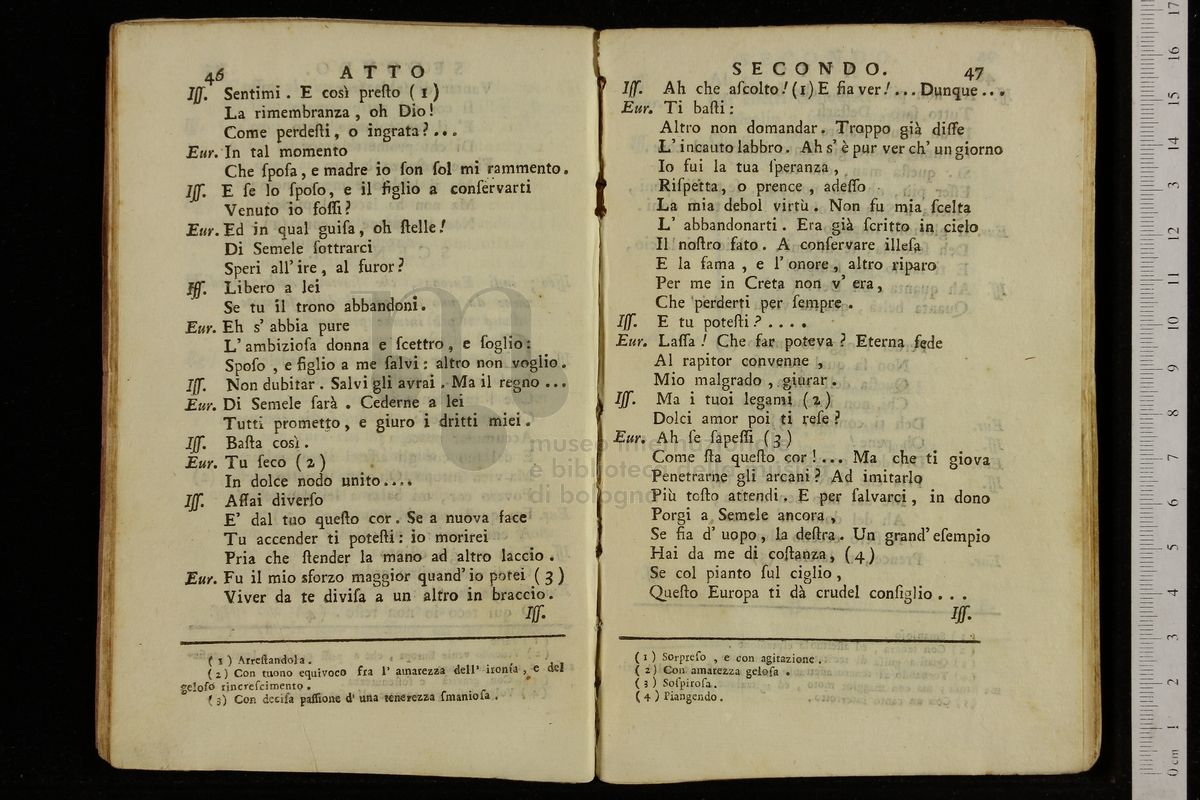 46 ATTO
Iſſ. Sentimi. E così preſto (1)
La rimembranza, oh Dio!
Come perdeſti, o ingrata?...
Eur. In tal momento
Che ſpoſa, e madre io ſon ſol mi rammento.
Iſſ. E ſe lo ſpoſo, e il figlio a conſervarti
Venuto io foſſi?
Eur. Ed in qual guiſa, oh ſtelle!
Di Semele ſottrarci
Speri all' ire, al furor?
Iſſ. Libero a lei
Se tu il trono abbandoni.
Eur. Eh s' abbia pure
L' ambizioſa donna e ſcettro, e ſoglio:
Spoſo, e figlio a me ſalvi: altro non voglio.
Iſſ. Non dubitar. Salvi gli avrai. Ma il regno...
Eur. Di Semele ſarà. Cederne a lei
Tutti prometto, e giuro i dritti miei.
Iſſ. Baſta così.
Eur. Tu ſeco (2)
In dolce nodo unito....
Iſſ. Aſſai diverſo
E' dal tuo queſto cor. Se a nuova face
Tu accender ti poteſti: io morirei
Pria che ſtender la mano ad altro laccio.
Eur. Fu il mio sforzo maggior quand' io potei (3)
Viver da te diviſa a un altro in braccio.
Iſſ.
(1) Arreſtandola.
(2) Con tuono equivoco fra l' amarezza dell' ironia, e del
geloſo rincreſcimento.
(3) Con deciſa paſſione d' una tenerezza ſmanioſa.
SECONDO. 47
Iſſ. Ah che aſcolto! (1) E fia ver!... Dunque...
Eur. Ti baſti:
Altro non domandar. Troppo già diſſe
L' incauto labbro. Ah s' è pur ver ch' un giorno
Io fui la tua ſperanza,
Riſpetta, o prence, adeſſo
La mia debol virtù. Non fu mia ſcelta
L' abbandonarti. Era già ſcritto in cielo
Il noſtro fato. A conſervare illeſa
E la fama, e l' onore, altro riparo
Per me in Creta non v' era,
Che perderti per ſempre.
Iſſ. E tu poteſti?....
Eur. Laſſa! Che far poteva? Eterna fede
Al rapitor convenne,
Mio malgrado, giurar.
Iſſ. Ma i tuoi legami (2)
Dolci amor poi ti reſe?
Eur. Ah ſe ſapeſſi (3)
Come ſta queſto cor!... Ma che ti giova
Penetrarne gli arcani? Ad imitarlo
Più toſto attendi. E per ſalvarci, in dono
Porgi a Semele ancora,
Se fia d' uopo, la deſtra. Un grand' eſempio
Hai da me di coſtanza, (4)
Se col pianto ſul ciglio,
Queſto Europa ti dà crudel conſiglio...
Iſſ.
(1) Sorpreſo, e con agitazione.
(2) Con amarezza geloſa.
(3) Soſpiroſa.
(4) Piangendo.
museo internazionale
e biblioteca della musica
di bologna
0 cm 1 2 3 4 5 6 7 8 9 10 11 12 13 14 15 16 17